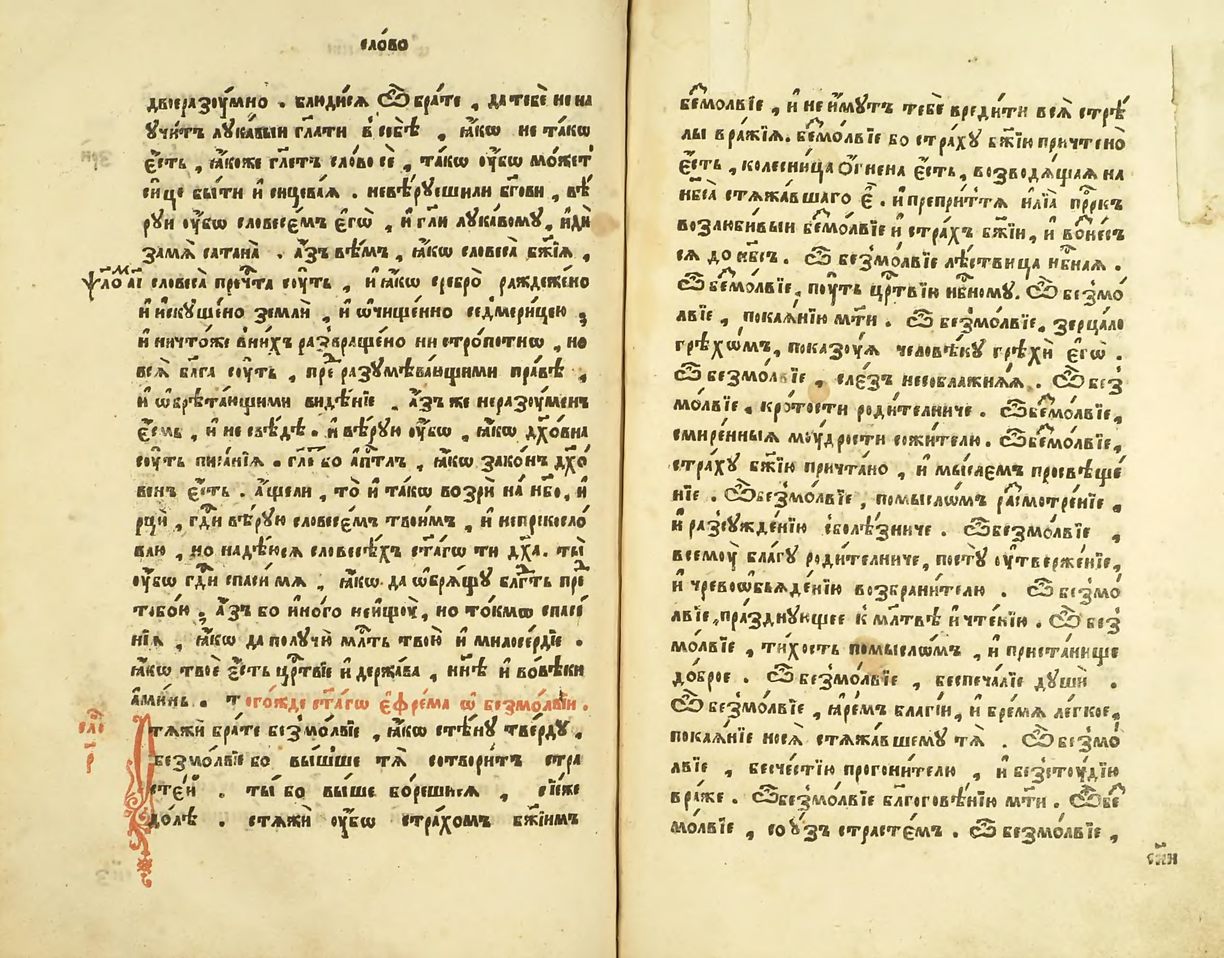 сло́во
двиеразꙋ́мно . блюди́сѧ Ѽ бра́те , да тебѐ не на
ꙋчи́тъ лꙋка́выи гл҃ати в̾ себѣ̀ , ꙗ҆́кѡ не та́кѡ
є҆́сть , ꙗ҆́коже гл҃етъ сло́во сѐ , та́кѡ ᲂу҆́бѡ мо́жет̾
си́це бы́ти и҆ сицева́ѧ . невѣ́рꙋешили бг҃ови , вѣ́
рꙋи ᲂу҆́бѡ словесє́мъ є҆гѡ̀ , и҆ гл҃и лꙋка́вомꙋ , идѝ
замѧ̀ сатана̀ . а҆́зъ вѣ́мъ , ꙗ҆́кѡ словеса̀ бж҃їѧ ,
ѱало́м аі словеса̀ пречⷭ҇та сꙋ́ть , и҆ ꙗ҆́кѡ сребро̀ раждеже́но
и҆ и҆скꙋше́но землѝ , и҆ ѡ҆чище́нно седмери́цею ;
и҆ ничто́же в̾ни́хъ развраще́но ни стро́потнѡ , но
всѧ̀ бл҃га сꙋ́ть , пред̾ разꙋмѣва́ющими пра́вѣ ,
и҆ ѡ҆брѣта́ющими ви́дѣнїе . а҆́зъ же неразꙋ́менъ
є҆́смь , и҆ не свѣ́дѣ . и҆ вѣ́рꙋю ᲂу҆́бѡ , ꙗ҆́кѡ дх҃о́вна
сꙋ́ть писа́нїѧ . гл҃ет̾ бо а҆пⷭ҇лъ , ꙗ҆́кѡ зако́нъ дх҃о́
венъ є҆́сть . а҆́щели , то̀ и҆ та́кѡ воззрѝ на́ нб҃о , и҆
рцы̀ , гдⷭ҇и вѣ́рꙋю словесє́мъ твои́мъ , и҆ непрекосло́
влю , но надѣ́юсѧ словесѣ́хъ ст҃а́гѡ ти дх҃а . ты̀
ᲂу҆́бѡ гдⷭ҇и спаси́ мѧ , ꙗ҆́кѡ да ѡ҆брѧ́щꙋ блгⷣть пред̾
тобо́ю , а҆́зъ бо и҆но́го неищꙋ̀ , но то́кмѡ спасе́
нїѧ , ꙗ҆́кѡ да полꙋчꙋ̀ млⷭ҇ть твою̀ и҆ милосе́рдїе .
ꙗ҆́кѡ твоѐ є҆́сть црⷭ҇твїе и҆ держа́ва , ны́нѣ и҆ вовѣ́ки
а҆ми́нь . тогожде ст҃а́гѡ є҆фре́ма ѡ҆ безмо́лвїи .
сло́ р҃
Стѧжѝ бра́те безмо́лвїе , ꙗ҆́кѡ стѣ́нꙋ тве́рдꙋ ,
безмо́лвїе бо вы́шше тѧ̀ сотвори́тъ стра
сте́й . ты́ бо вы́ше бо́решисѧ , сїѝже
до́лѣ . стѧжѝ ᲂу҆́бѡ стра́хомъ бж҃їимъ
безмо́лвїе , и҆ не и҆́мꙋтъ тебѐ вреди́ти всѧ̀ стрѣ́
лы вра́жїѧ . безмо́лвїе бо стра́хꙋ бж҃їю причтено̀
є҆́сть , колесни́ца ѻ҆́гнена є҆́сть , возводѧ́щаѧ на
нб҃са стѧжа́вшаго є҆̀ . и҆ преприѧ́тсѧ и҆лїа̀ прⷪ҇ркъ
возлюби́выи безмо́лвїе и҆ стра́хъ бж҃їи , и҆ вознесъ
сѧ до нб҃съ . Ѽ безмо́лвїе лѣ́ствица нбⷭ҇наѧ .
Ѽ безмо́лвїе , пꙋ́ть црⷭ҇твїю нбⷭ҇номꙋ . Ѽ безмо́
лвїе , покаѧ́нїю мт҃и . Ѽ безмо́лвїе , зерцало
грѣхо́мъ , показꙋ́ѧ человѣ́кꙋ грѣхѝ є҆гѡ̀ .
Ѽ безмо́лвїе , сле́зъ несоблажнѧ́ѧ . Ѽ без̾
мо́лвїе , кро́тости роди́телниче . Ѽ безмо́лвїе ,
смире́нныѧ мꙋ́дрости сожи́телю . Ѽ безмо́лвїе ,
стра́хꙋ бж҃їю причта́но , и҆ мы́слемъ просвѣще́
нїе . Ѽ безмо́лвїе , по́мысломъ расмотре́нїе ,
и҆ разсꙋжде́нїю сболѣ́зниче . Ѽ безмо́лвїе ,
всемꙋ̀ бла́гꙋ роди́телниче , постꙋ̀ ᲂу҆тверже́нїе ,
и҆ чревоѡбьѧде́нїю возбрани́телю . Ѽ безмо́
лвїе , пра́зднꙋющее к̾ мл҃твѣ и҆ чте́нїю . Ѽ без̾
мо́лвїе , ти́хость по́мысломъ , и҆ приста́нище
до́брое . Ѽ безмо́лвїе , беспеча́лїе дꙋшѝ .
Ѽ безмо́лвїе , ꙗ҆ре́мъ благі́и , и҆ бре́мѧ ле́гкое ,
покаѧ́нїе носѧ̀ стѧжа́вшемꙋ тѧ̀ . Ѽ безмо́
лвїе , бесче́стїю прогони́телю , и҆ безстꙋ́дїю
вра́же . Ѽ безмо́лвїе бл҃гоговѣ́нїю мт҃и . Ѽ бе́
молвїе , со ᲂу҆́зъ страсте́мъ . Ѽ безмо́лвїе ,
с҃ни